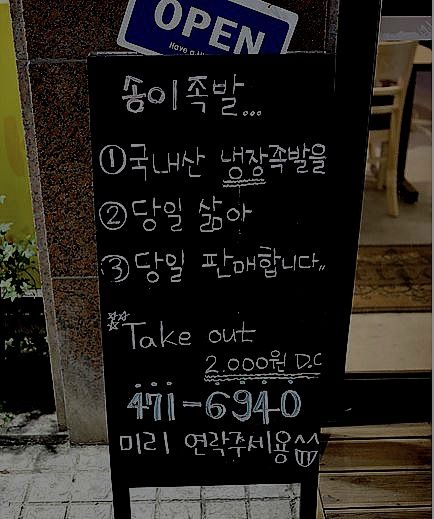 OPEN
송이족발...
①국내산 냉장족발을
②당일 삶아
③당일 판매합니다,,
Take out
2.000원 D.C
471-6940
미리 연락주세용^^